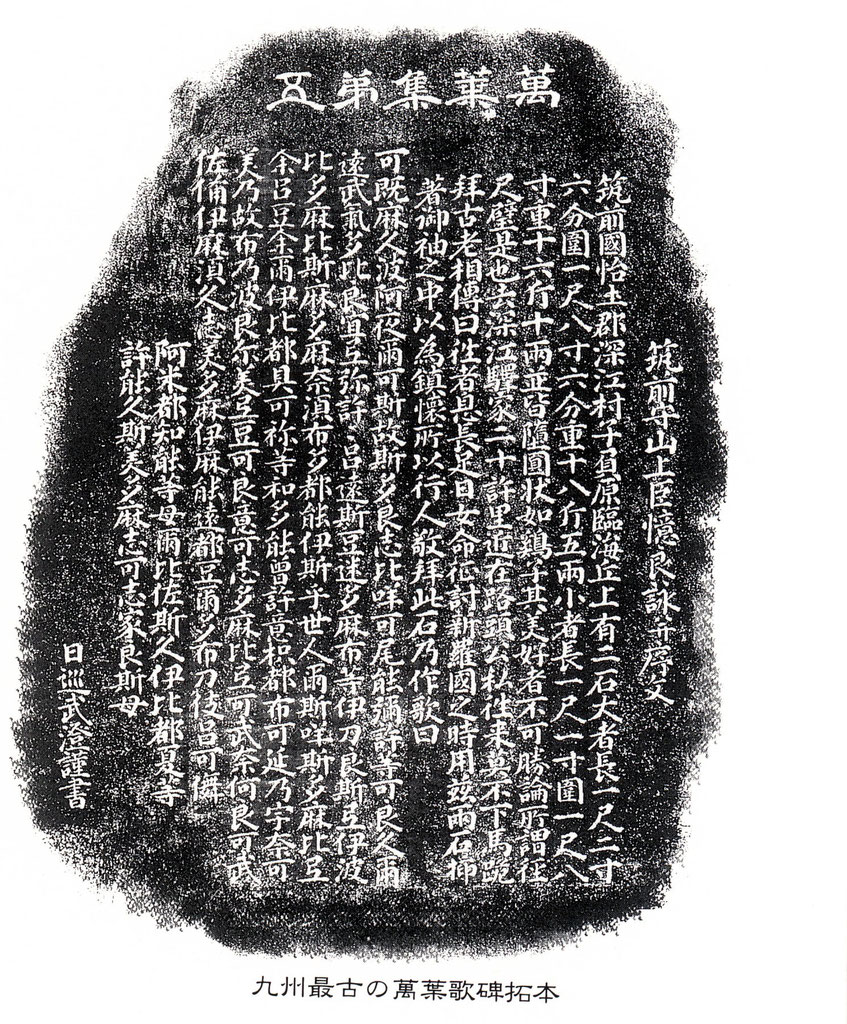 萬葉集第五
筑前守山上臣憶良詠并序文
筑前國怡土郡深江村子負原臨海丘上有二石大者長一尺二寸
六分圍一尺八寸六分重十八斤五兩小者長一尺一寸圍一尺八
寸重十六斤十兩並皆隨圓状如鶏子其美好者不可勝論所謂径
尺璧是也去深江驛家二十許里近在路頭公私徃来莫不下馬跪
拜古老相傳曰徃者息長足日女命征討新羅國之時用茲兩石挿
著御袖之中以為鎮懐所以行人敬拜此石乃作歌曰
可既麻久波阿夜爾可斯故斯多良志比咩可尾能彌許等可良久爾
遠武氣多比良宜弖弥許々呂遠斯豆迷多麻布等伊刀良斯弖伊波
比多麻比斯麻多麻奈湏布多都能伊斯乎世人爾斯咩斯多麻比弖
余呂豆余爾伊比都具可祢等和多能曾許意枳都布可延乃宇奈可
美乃故布乃波良尓美弖豆可良意可志多麻比弖可武奈何良可武
佐備伊麻湏久志美多麻伊麻能遠都豆爾多布刀伎呂可儛
阿米都知能等母爾比佐斯久伊比都夏等
許能久斯美多麻志可志家良斯母
日巡武澄謹書
九州最古の萬葉歌碑拓本